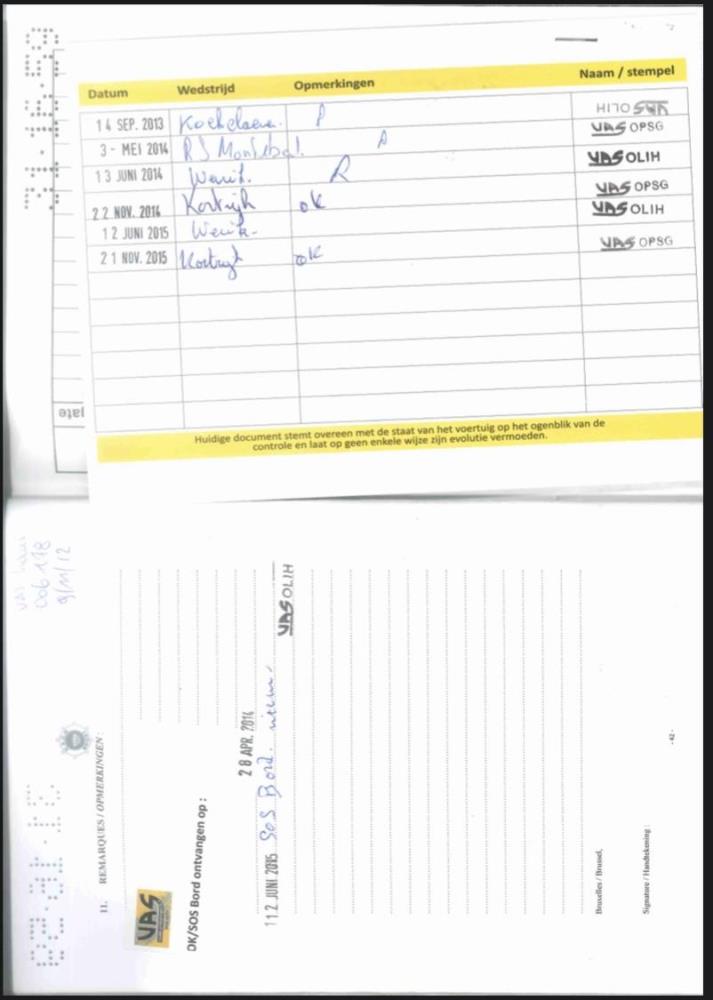 Datum Wedstrijd Opmerkingen Naam / stempel
14 SEP. 2013 Koekelare. VAS OLIH
3 - MEI 2014 RS VAS OPSG
13 JUNI 2014 R VAS OLIH
22 NOV. 2014 Kortrijk ok VAS OPSG
12 JUNI 2015 VAS OLIH
21 NOV. 2015 Kortrijk ok VAS OPSG
Huidige document stemt overeen met de staat van het voertuig op het ogenblik van de
controle en laat op geen enkele wijze zijn evolutie vermoeden.
VAS
006 178
9/11/12
11. REMARQUES / OPMERKINGEN :
VAS
OK/SOS Bord ontvangen op :
28 APR. 2014
12 JUNI 2015 SOS Bord. nieuw. VAS OLIH
Bruxelles / Brussel,
Signature / Handtekening :
- 42 -